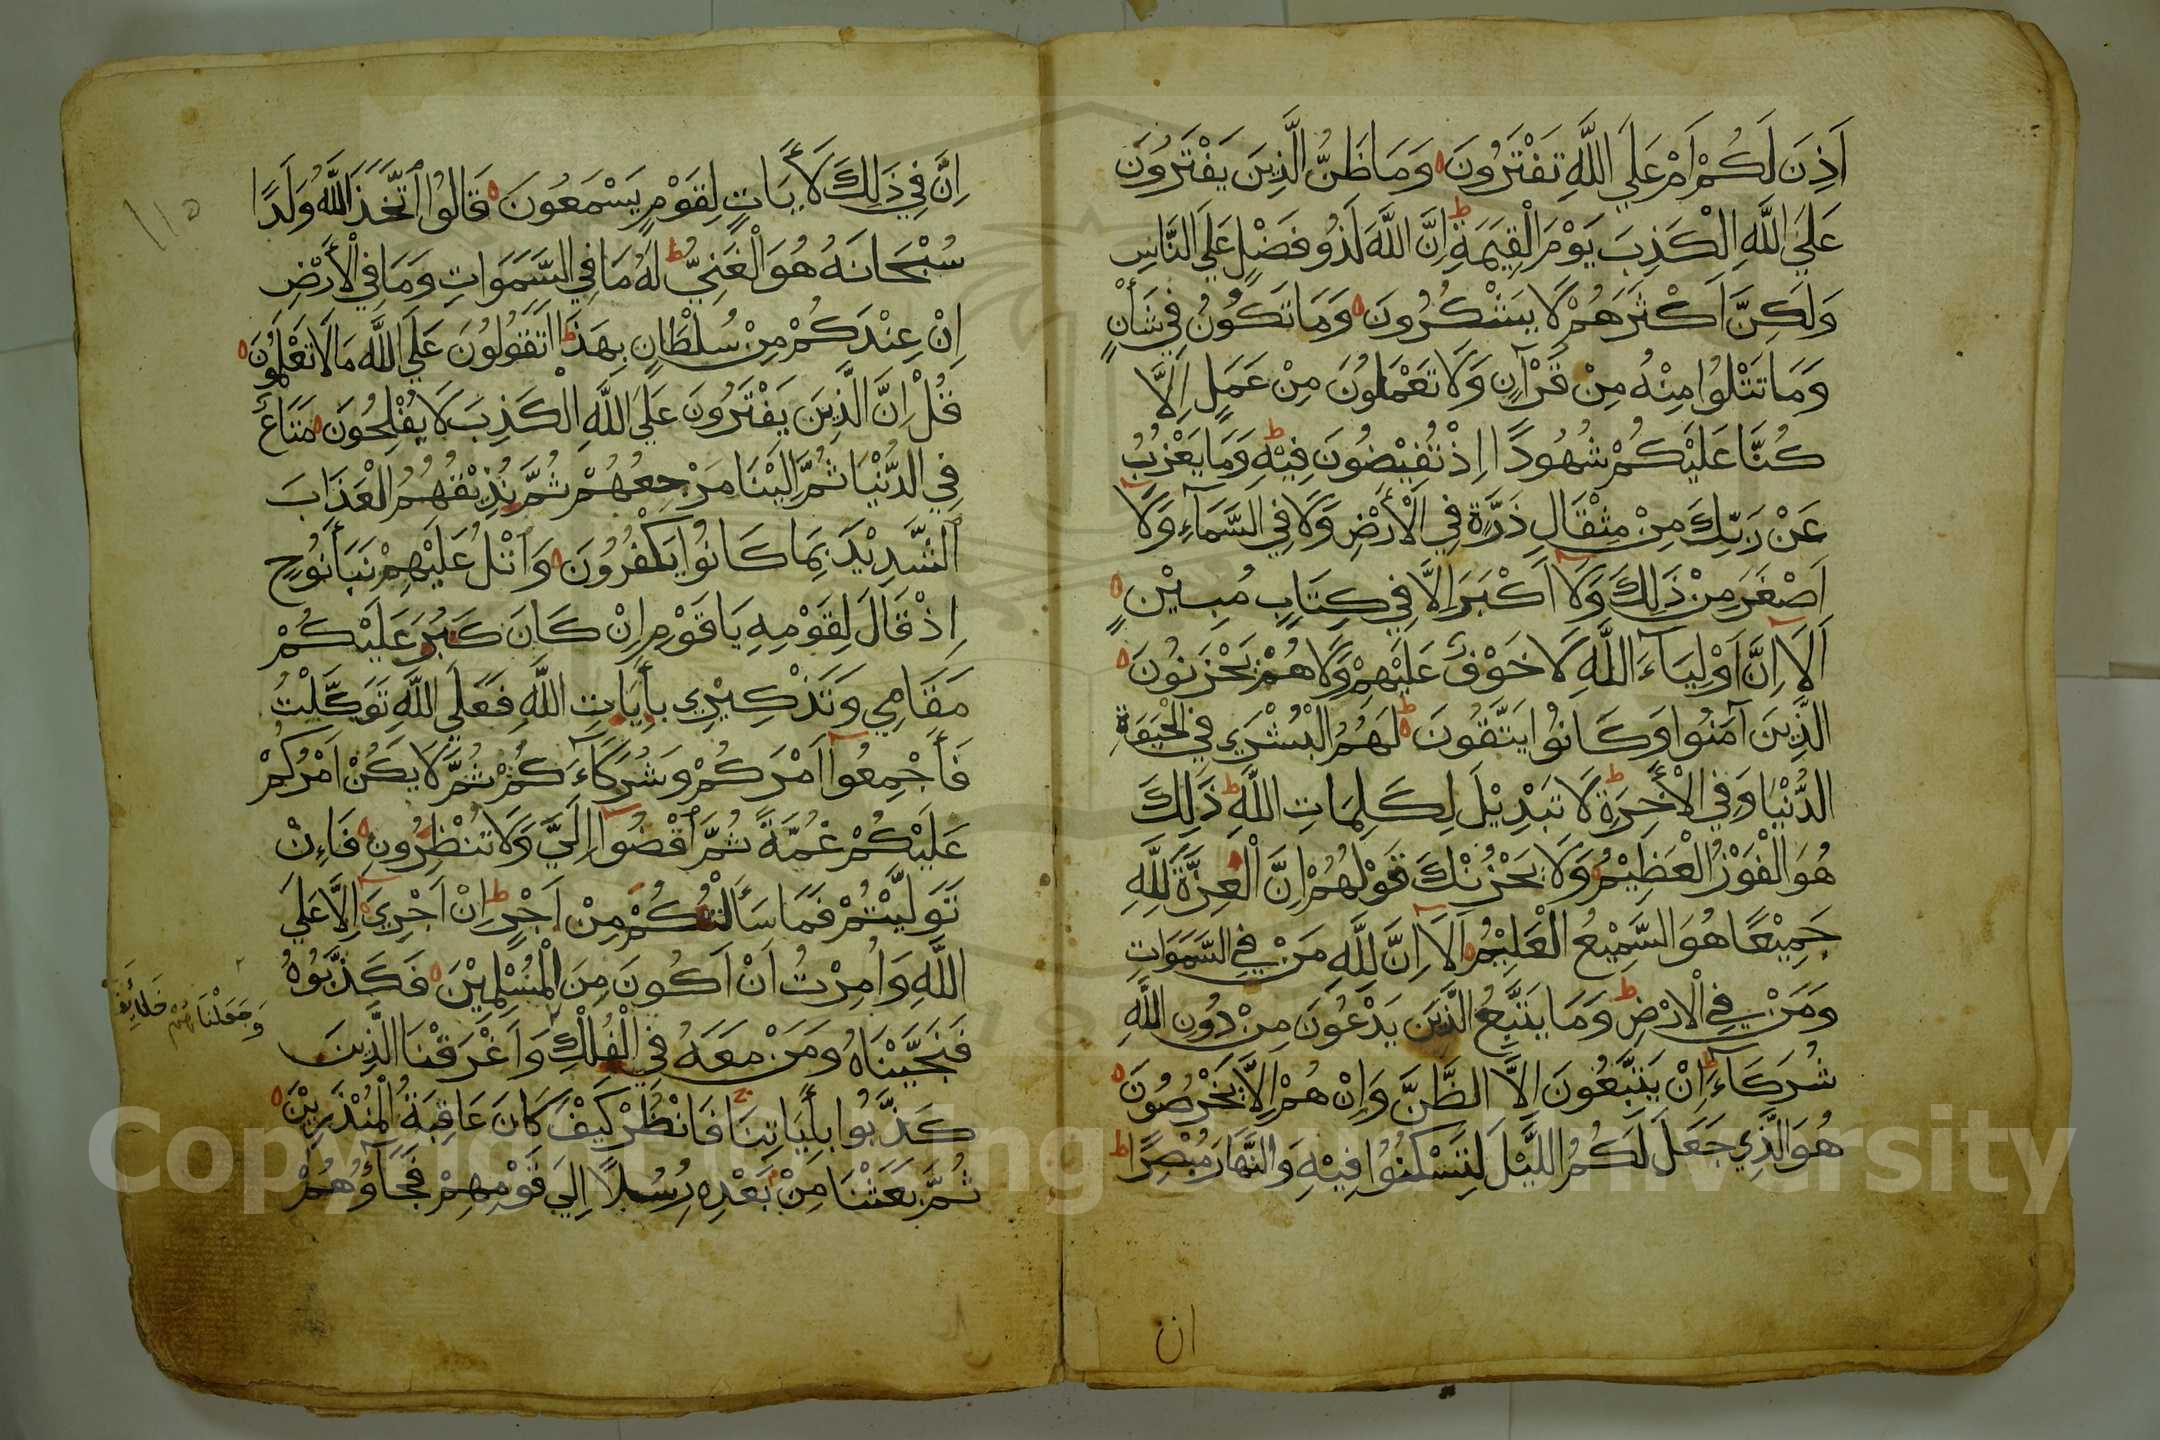 اَذِنَ لَكُمْ اَمْ عَلَي اللَّهِ تَفْتَرُونَ ه وَمَا ظَنُّ الَّذِينَ يَفْتَرُونَ
عَلَي اللَّهِ الْكَذِبَ يَوْمَ الْقِيَمَةِ ط اِنَّ اللَّهَ لَذُو فَضْلٍ عَلَي النَّاسِ
وَلَكِنَّ اَكْثَرَهُمْ لَا يَشْكُرُونَ ه وَمَا تَكُونُ فِي شَأْنٍ
وَمَا تَتْلُوا مِنْهُ مِنْ قُرْآنٍ وَلَا تَعْمَلُونَ مِنْ عَمَلٍ اِلَّا
كُنَّا عَلَيْكُمْ شُهُودًا اِذْ تُفِيْضُونَ فِيْهِ ط وَمَا يَعْزُبُ
عَنْ رَبِّكَ مِنْ مِثْقَالِ ذَرَّةٍ فِي الْأَرْضِ وَلَا فِي السَّمَآءِ وَلَا
اَصْغَرَ مِنْ ذَلِكَ وَلَا اَكْبَرَ اِلَّا فِي كِتَابٍ مُبِيْنٍ ه
اَلَا اِنَّ اَوْلِيَآءَ اللَّهِ لَا خَوْفٌ عَلَيْهِمْ وَلَا هُمْ يَحْزَنُونَ ه
الَّذِينَ آمَنُوا وَكَانُوا يَتَّقُونَ ه ط لَهُمُ الْبُشْرَي فِي الْحَيَوةِ
الدُّنْيَا وَفِي الْأَخِرَةِ ط لَا تَبْدِيْلَ لِكَلِمَاتِ اللَّهِ ط ذَلِكَ
هُوَ الْفَوْزُ الْعَظِيْمُ ه وَلَا يَحْزُنْكَ قَوْلُهُمْ اِنَّ الْعِزَّةَ لِلَّهِ
جَمِيْعًا هُوَ السَّمِيْعُ الْعَلِيْمُ ه اَلَا اِنَّ لِلَّهِ مَنْ فِي السَّمَوَاتِ
وَمَنْ فِي الْاَرْضِ ط وَمَا يَتَّبِعُ الَّذِينَ يَدْعُونَ مِنْ دُونِ اللَّهِ
شُرَكَآءَ ط اِنْ يَتَّبِعُونَ اِلَّا الظَّنَّ وَاِنْ هُمْ اِلَّا يَخْرُصُونَ ه
هُوَ الَّذِي جَعَلَ لَكُمُ اللَّيْلَ لِتَسْكُنُوا فِيْهِ وَالنَّهَارَ مُبْصِرًا ط
ان
١١٥
اِنَّ فِي ذَلِكَ لَأَيَاتٍ لِقَوْمٍ يَسْمَعُونَ ه قَالُوا اتَّخَذَ اللَّهُ وَلَدًا
سُبْحَانَهُ هُوَ الْغَنِيُّ ط لَهُ مَا فِي السَّمَوَاتِ وَمَا فِي الْأَرْضِ
اِنْ عِنْدَكُمْ مِنْ سُلْطَانٍ بِهَذَا ط اَتَقُولُونَ عَلَي اللَّهِ مَا لَا تَعْلَمُونَ ه
قُلْ اِنَّ الَّذِينَ يَفْتَرُونَ عَلَي اللَّهِ الْكَذِبَ لَا يُفْلِحُونَ ه مَتَاعٌ
فِي الدُّنْيَا ثُمَّ اِلَيْنَا مَرْجِعُهُمْ ثُمَّ نُذِيْقُهُمُ الْعَذَابَ
الشَّدِيْدَ بِمَا كَانُوا يَكْفُرُونَ ه وَاتْلُ عَلَيْهِمْ نَبَأَ نُوحٍ
اِذْ قَالَ لِقَوْمِهِ يَا قَوْمِ اِنْ كَانَ كَبُرَ عَلَيْكُمْ
مَقَامِي وَتَذْكِيْرِي بِأَيَاتِ اللَّهِ فَعَلَي اللَّهِ تَوَكَّلْتُ
فَأَجْمِعُوا اَمْرَكُمْ وَشُرَكَآءَ كُمْ ثُمَّ لَا يَكُنْ اَمْرُكُمْ
عَلَيْكُمْ غُمَّةً ثُمَّ اقْضُوا اِلَيَّ وَلَا تُنْظِرُونِ ه فَاِنْ
تَوَلَّيْتُمْ فَمَا سَأَلْتُكُمْ مِنْ اَجْرٍ ط اِنْ اَجْرِيَ اِلَّا عَلَي
اللَّهِ وَاُمِرْتُ اَنْ اَكُونَ مِنَ الْمُسْلِمِيْنَ ه فَكَذَّبُوْهُ
وَجَعَلْنَاهُمْ خَلَائِفَ
فَنَجَّيْنَاهُ وَمَنْ مَعَهُ فِي الْفُلْكِ وَاَغْرَقْنَا الَّذِينَ
كَذَّبُوا بِأَيَاتِنَا ج فَانْظُرْ كَيْفَ كَانَ عَاقِبَةُ الْمُنْذَرِيْنَ ه
ثُمَّ بَعَثْنَا مِنْ بَعْدِهِ رُسُلًا اِلَي قَوْمِهِمْ فَجَآؤُهُمْ
Copyright © King Saud University